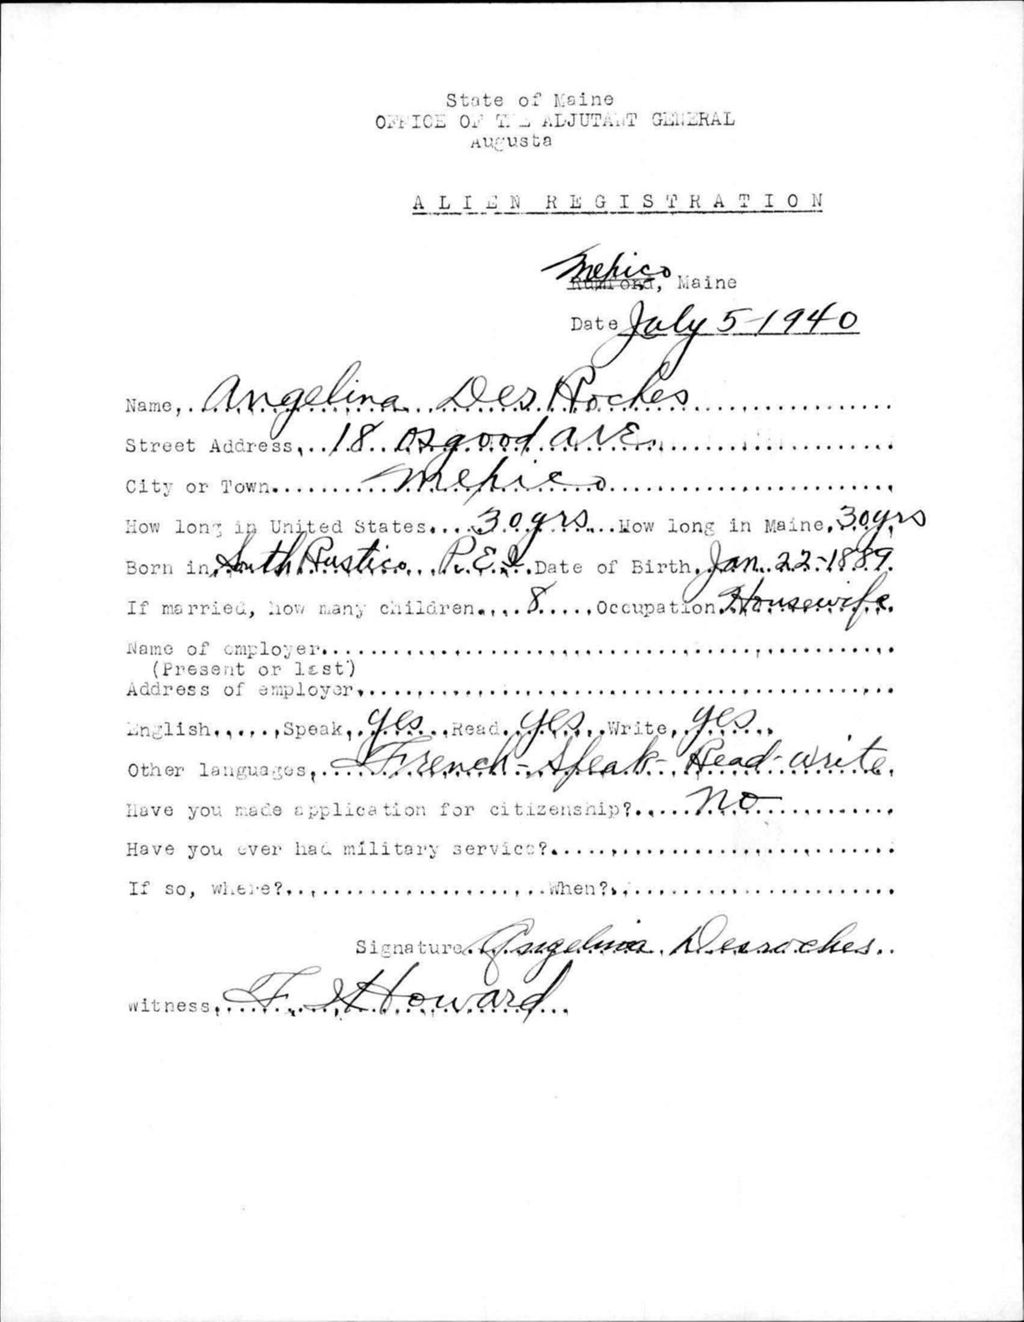 State of Maine
OFFICE OF THE ADJUTANT GENERAL
Augusta
ALIEN REGISTRATION
Mexico
Rumford, Maine
Date July 5-1940
Name, Angelina Des Roches
Street Address, 18 Osgood Ave.
City or Town Mexico
How long in United States 30 yrs How long in Maine, 30 yrs
Born in South Rustico, P.E.I. Date of Birth, Jan. 22-1889.
If married, how many children 8 Occupation Housewife
Name of employer
(Present or last)
Address of employer
English Speak, yes Read yes Write, yes
Other languages, French - Speak - Read - write
Have you made application for citizenship? No
Have you ever had military service?
If so, where? When?
Signature Angelina Desroches
Witness, F. J. Howard